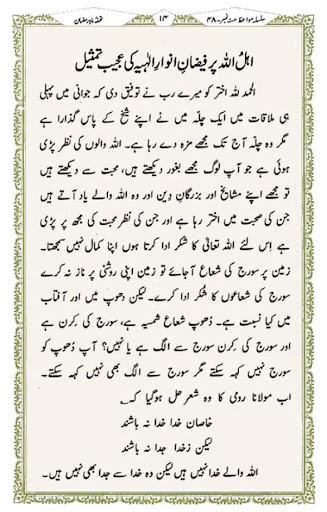 سلسلہ مواعظ حسنہ نمبر۔۴۸
۱۴
اہلُ اللہ پر فیضانِ انوارِ الٰہیہ کی عجیب تمثیل
الحمد للہ اختر کو میرے رب نے توفیق دی کہ جوانی میں پہلی
ہی ملاقات میں ایک چلّہ میں نے اپنے شیخ کے پاس گذارا ہے
مگر وہ چلّہ آج تک مجھے مزہ دے رہا ہے۔ اللہ والوں کی نظر پڑی
ہوئی ہے جو آپ لوگ مجھے بغور دیکھتے ہیں، محبت سے دیکھتے ہیں
تو مجھے اپنے مشایخ اور بزرگانِ دین اور وہ اللہ والے یاد آتے ہیں
جن کی صحبت میں اختر رہا ہے اور جن کی نظرِ محبت کی مجھ پر پڑی
ہے اِس لئے اللہ تعالیٰ کا شکر ادا کرتا ہوں اپنا کمال نہیں سمجھتا۔
زمین پر سورج کی شعاع آجائے تو زمین اپنی روشنی پر ناز نہ کرے
سورج کی شعاعوں کا شکر ادا کرے۔ لیکن دھوپ میں اور آفتاب
میں کیا نسبت ہے۔ دُھوپ شعاع شمسیہ ہے، سورج کی کِرن ہے
اور سورج کی کِرن سورج سے الگ ہے یا نہیں؟ آپ دُھوپ کو
سورج نہیں کہہ سکتے مگر سورج سے الگ بھی نہیں کہہ سکتے۔
اب مولانا رومی کا وہ شعر حل ہوگیا کہ
خاصانِ خدا خدا نہ باشند
لیکن زخدا جدا نہ باشند
اللہ والے خدا نہیں ہیں لیکن وہ خدا سے جدا بھی نہیں ہیں۔